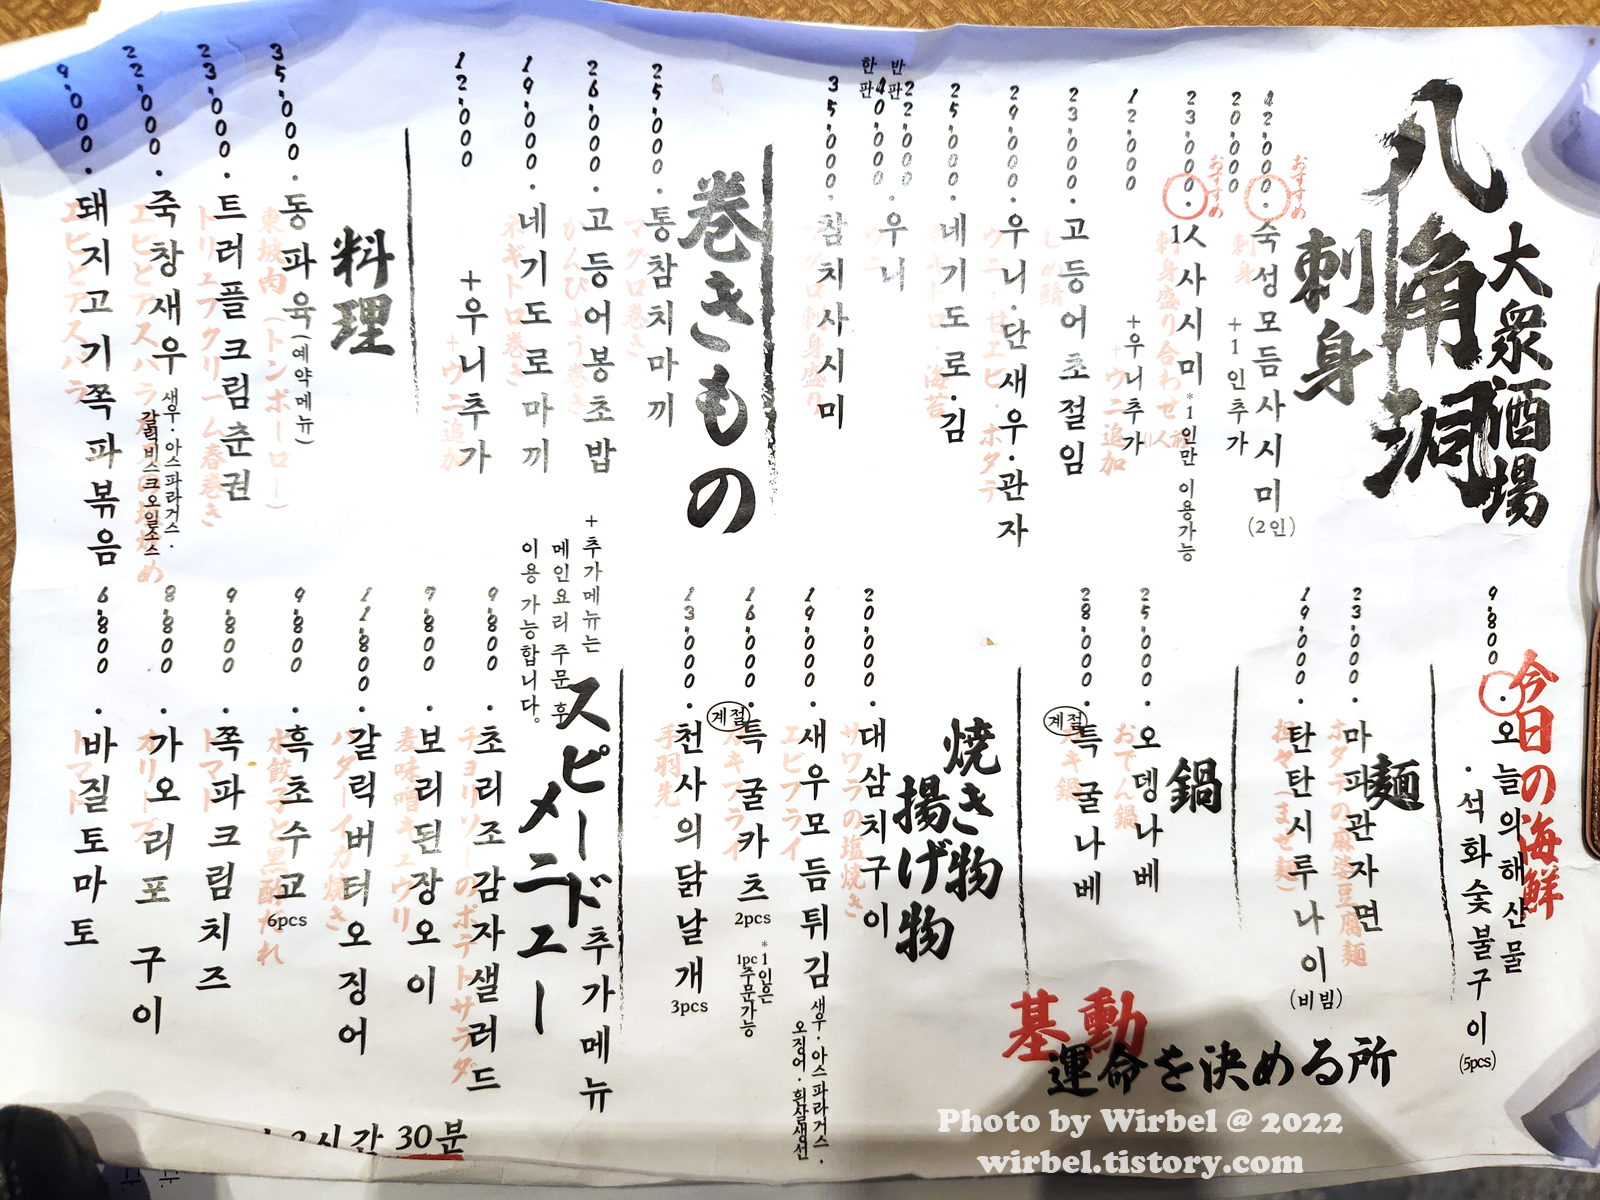 大衆酒場
八角洞
刺身
おすすめ
42,000 · 숙성모듬사시미 (2인)
刺身
20,000 +1인추가
おすすめ
23,000 · 1人사시미 *1인만 이용가능
刺身盛り合わせ
12,000 +우니추가
+ウニ追加
23,000 · 고등어초절임
しめ鯖
29,000 · 우니·단새우·관자
ウニ·甘エビ·ホタテ
25,000 · 네기도로·김
반판 22,000
한판 40,000 · 우니
35,000 · 참치사시미
巻きもの
25,000 · 통참치마끼
マグロ巻き
26,000 · 고등어봉초밥
19,000 · 네기도로마끼
ネギトロ巻き
12,000 +우니추가
+ウニ追加
料理
35,000 · 동파육 (예약메뉴)
東坡肉 (トンポーロー)
23,000 · 트러플크림춘권
トリュフクリーム春巻き
22,000 · 죽창새우 생우·아스파라거스·
갈릭비스크오일소스
9,000 · 돼지고기쪽파볶음
今日の海鮮
9,800 · 오늘의해산물
· 석화숯불구이 (5pcs)
麺
23,000 · 마파관자면
ホタテの麻婆豆腐麺
19,000 · 탄탄시루나이 (비빔)
担々(まぜ麺)
鍋
25,000 · 오뎅나베
おでん鍋
28,000 · 특굴나베
계절
焼き物
揚げ物
20,000 · 대삼치구이
サワラの塩焼き
19,000 · 새우모듬튀김 생우·아스파라거스·
오징어·흰살생선
エビフライ
16,000 · 특굴카츠 2pcs
계절
*1인은
1pc주문가능
13,000 · 천사의닭날개 3pcs
手羽先
スピード
メニュー
추가메뉴
+추가메뉴는
메인요리 주문 후
이용 가능합니다.
9,800 · 초리조감자샐러드
チョリソーのポテトサラダ
9,800 · 보리된장오이
麦味噌キュウリ
11,800 · 갈릭버터오징어
9,800 · 흑초수교 6pcs
水餃子と黒酢だれ
9,800 · 쪽파크림치즈
8,800 · 가오리포 구이
6,800 · 바질토마토
基 勳
運命を決める所
2시간 30분
Photo by Wirbel @ 2022
wirbel.tistory.com